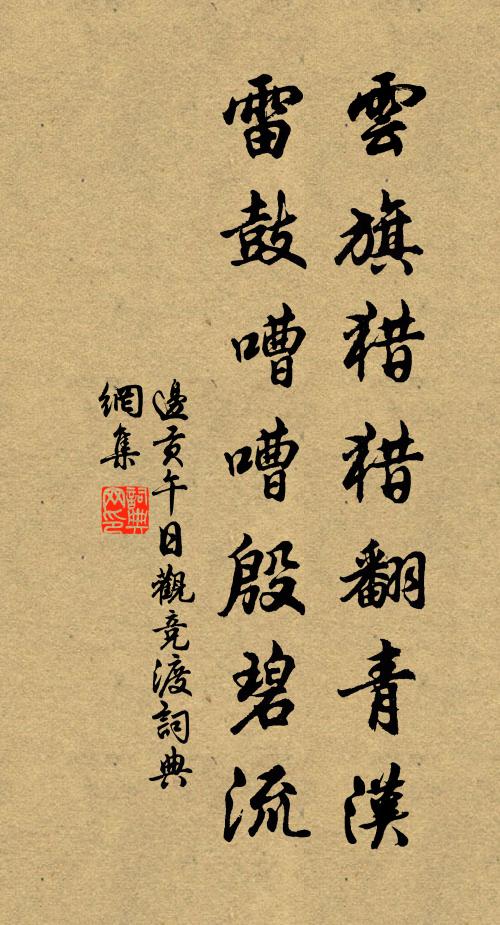 雲旗猎猎翻青漢
雷鼓嘈嘈殷碧流
邊貢午日觀竞渡詞典
網集
詞典
网印